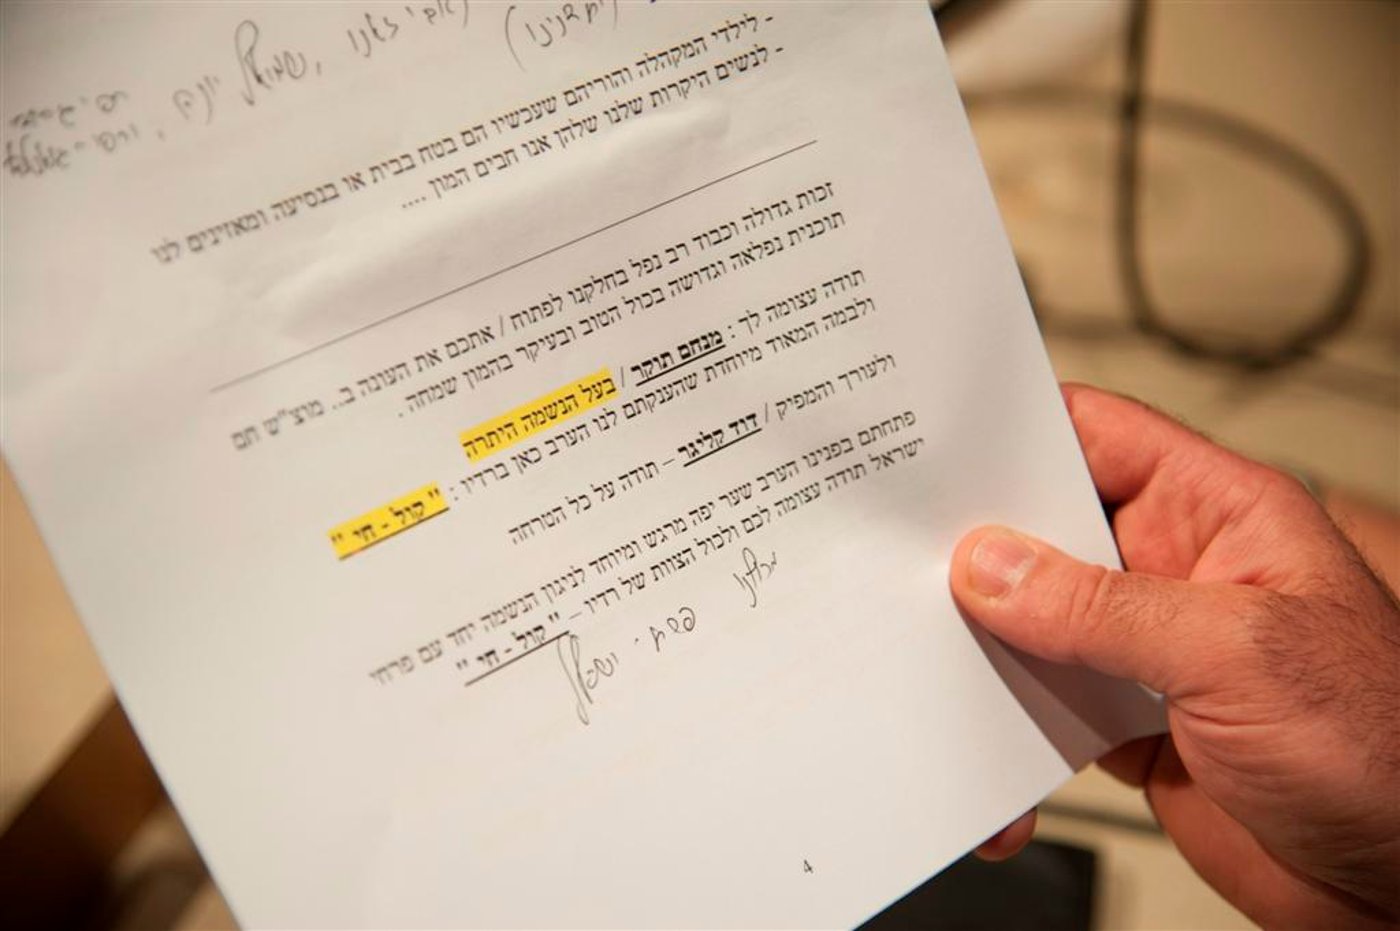 (ויזניץ)
- לילדי המקהלה והוריהם שעכשיו הם בטח בבית או בנסיעה ומאזינים לנו
- לנשים היקרות שלנו שלהן אנו חבים המון ....
זכות גדולה וכבוד רב נפל בחלקנו לפתוח / אתכם את העונה ב.. מוצ"ש חם
תוכנית נפלאה וגדושה בכול הטוב ובעיקר בהמון שמחה .
תודה עצומה לך : מנחם תוקר / בעל הנשמה היתרה
ולבמה המאוד מיוחדת שהענקתם לנו הערב כאן ברדיו : " קול - חי "
ולעורך והמפיק / דוד קליגר – תודה על כל הטרחה
פתחתם בפנינו הערב שער יפה מרגש ומיוחד לניגון הנשמה יחד עם פרחי
ישראל תודה עצומה לכם ולכול הצוות של רדיו – " קול - חי "
פרחי ישראל
4